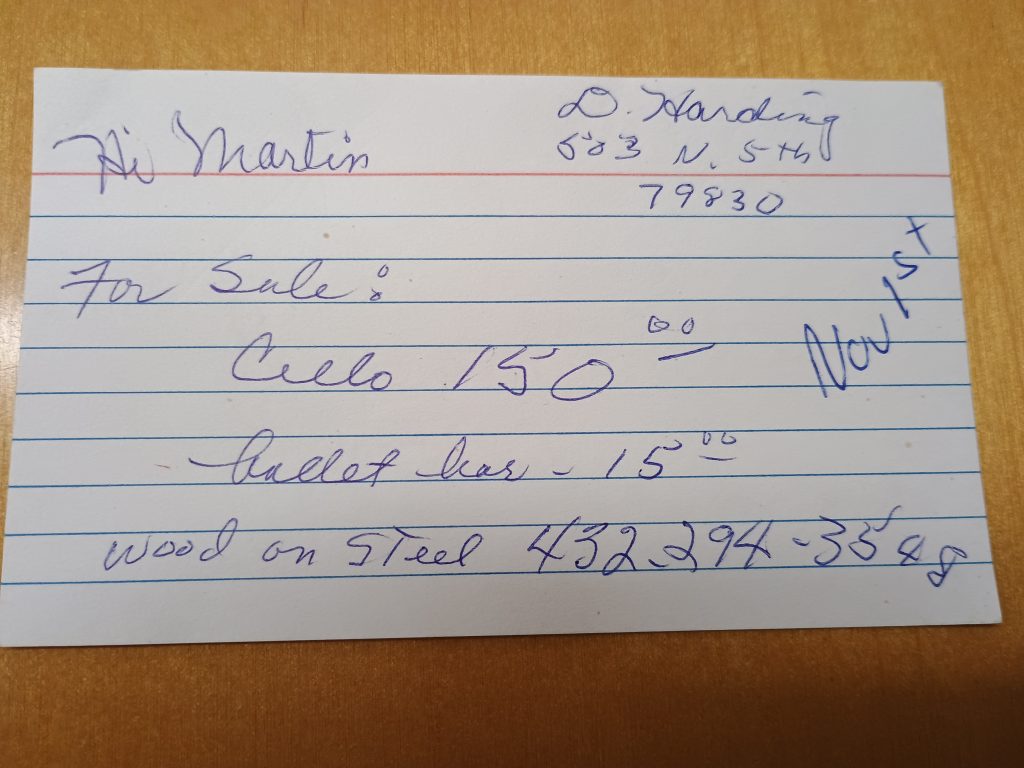 Hi Martin
D. Harding
503 N. 5th
79830
Nov 1st
For Sale:
Cello 150 00
ballet bar - 15 00
wood on Steel 432-294-3588